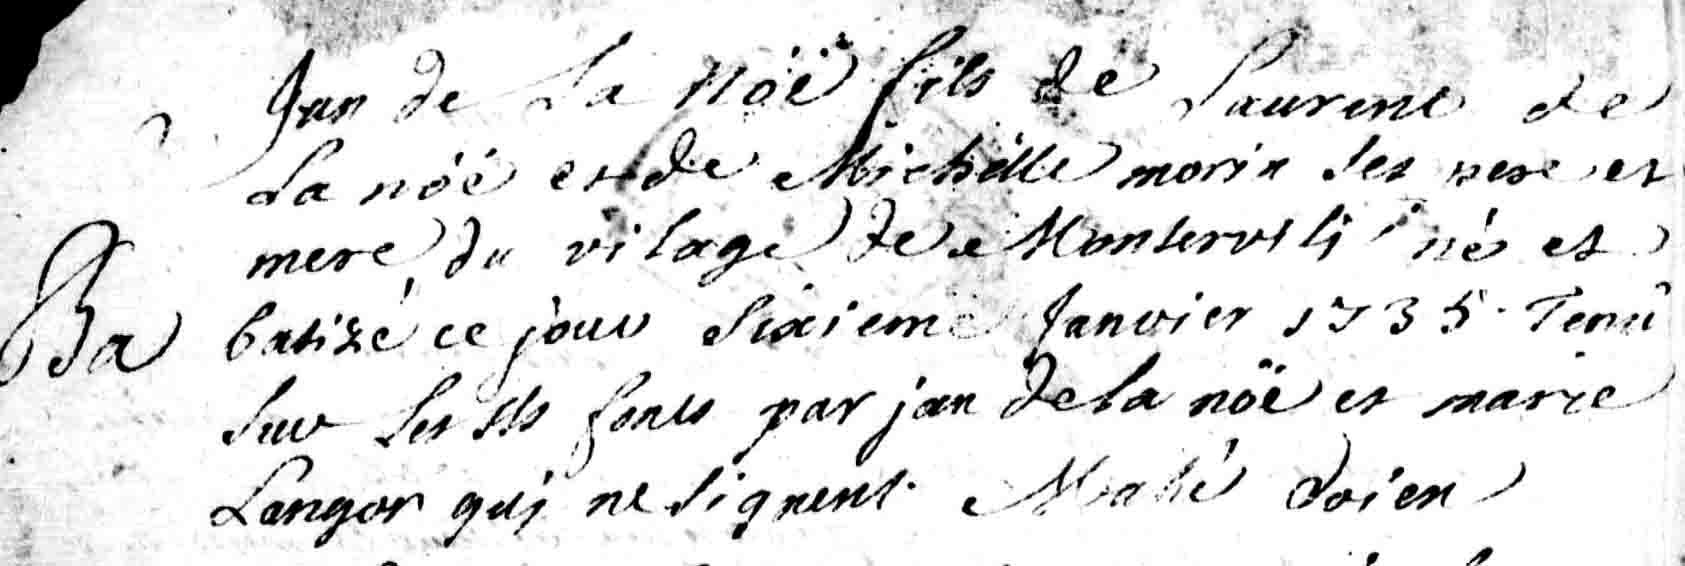 Jan de La nöë fils de Laurent de
La nöé et de Michelle morin ses pere et
mere du vilage de Monterveli né et
Ba batizé ce jour sixieme Janvier 1735 Tenû
sur les sts fonts par jan de la nöë et marie
Langor qui ne signent. Mahé doien